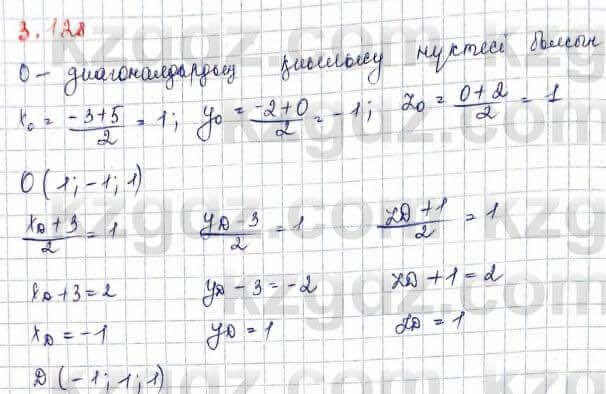 3.128
O – диагональдардың қиылысу нүктесі болсын
x₀ = (-3+5)/2 = 1; y₀ = (-2+0)/2 = -1; z₀ = (0+2)/2 = 1
O(1; -1; 1)
(x_D + 3)/2 = 1 (y_D - 3)/2 = 1 (z_D + 1)/2 = 1
x_D + 3 = 2 y_D - 3 = -2 z_D + 1 = 2
x_D = -1 y_D = 1 z_D = 1
D(-1; 1; 1)